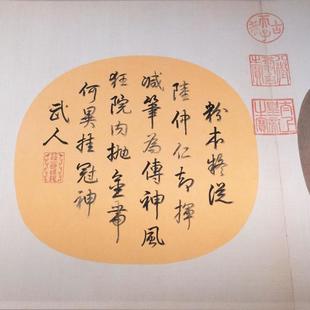 粉本疑從
陸仲仁却揮
減筆為傳神風
狂院内抛金帶
何異挂冠神
武人